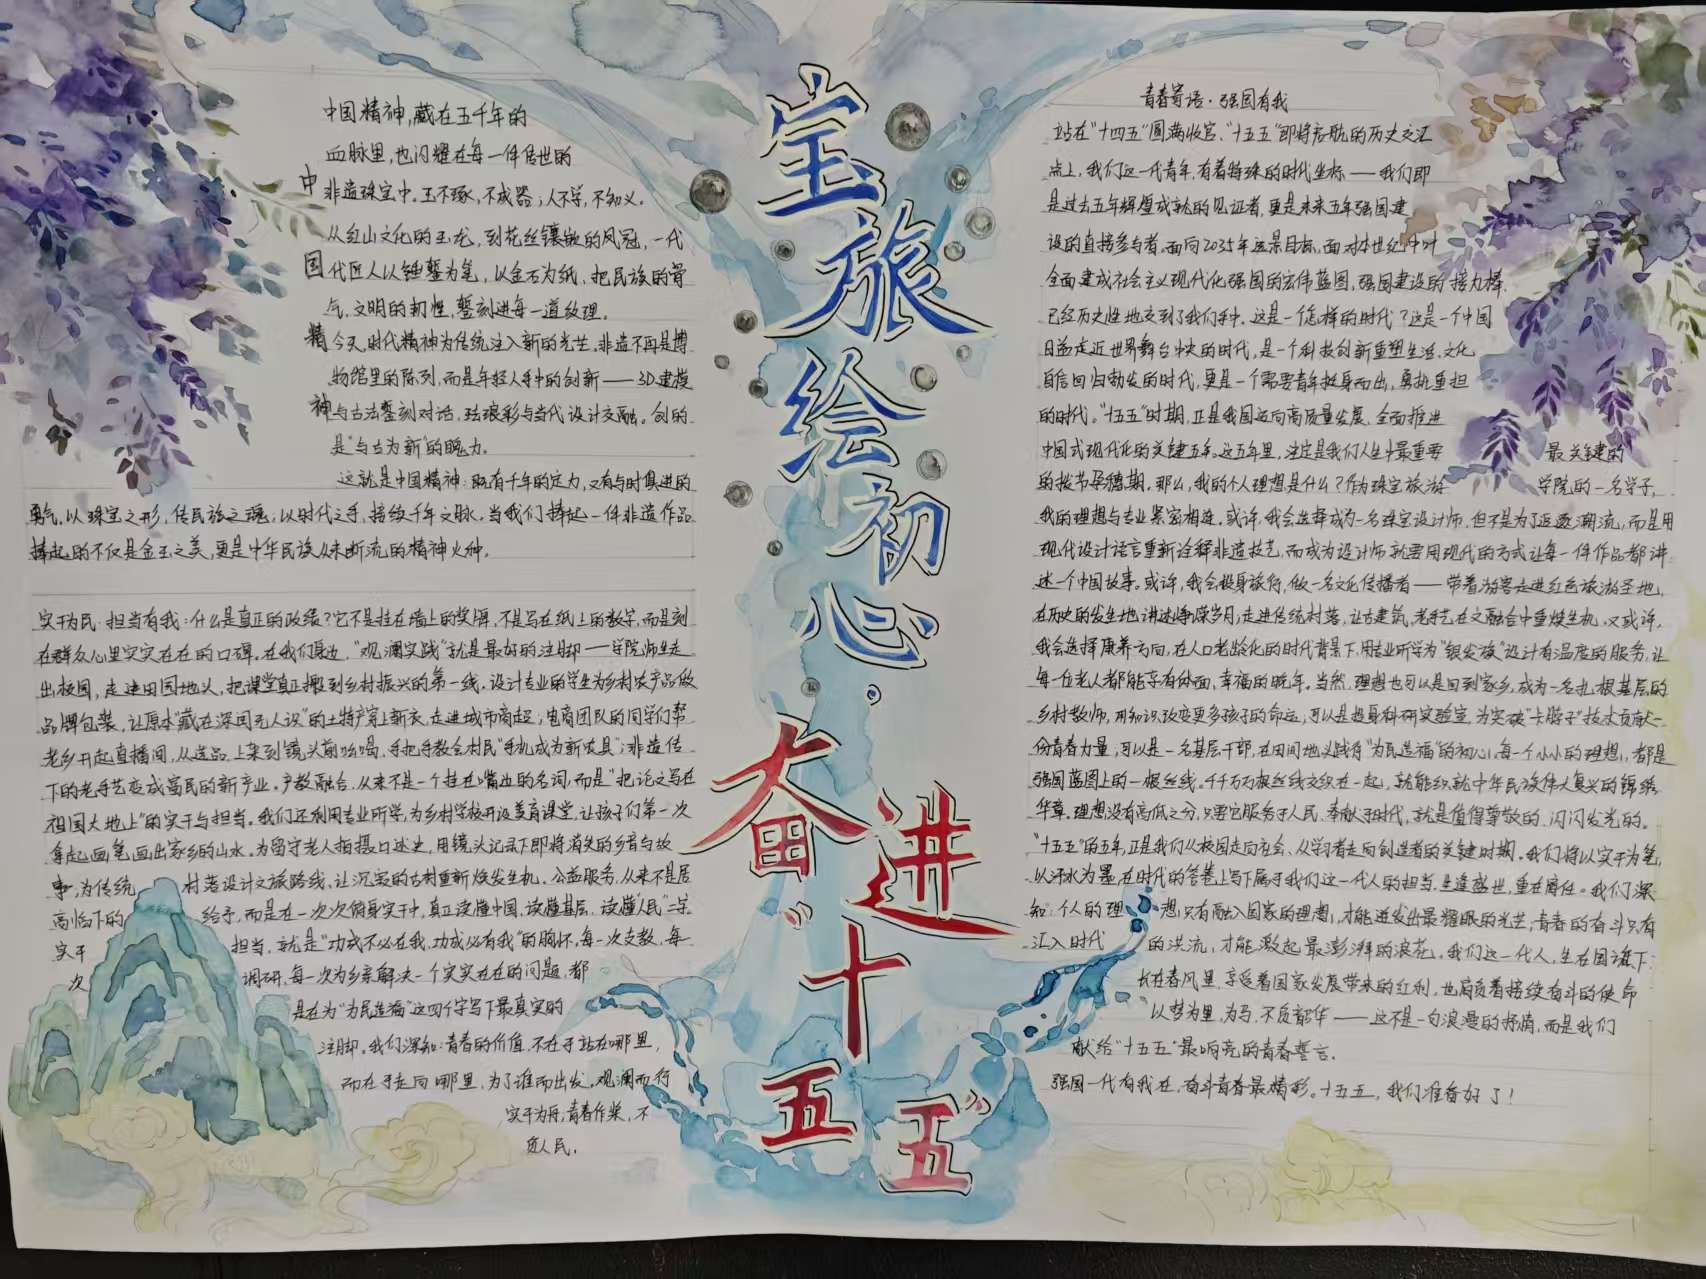 宝旅绘初心
奋进“十五五”
中国精神
中国精神,藏在五千年的
血脉里,也闪耀在每一件传世的
非遗珠宝中。玉不琢,不成器;人不学,不知义。
从红山文化的玉龙,到花丝镶嵌的凤冠,一代
代匠人以锤錾为笔,以金石为纸,把民族的骨
气,文明的韧性,錾刻进每一道纹理。
今天,时代精神为传统注入新的光芒。非遗不再是博
物馆里的陈列,而是年轻人手中的创新——3D建模
与古法錾刻对话,珐琅彩与当代设计交融。创的
是“与古为新”的魄力。
这就是中国精神:既有千年的定力,又有与时俱进的
勇气,以珠宝之形,传民族之魂,以时代之手,接续千年文脉。当我们捧起一件非遗作品
捧起的不仅是金玉之美,更是中华民族从未断流的精神火种。
实干为民·担当有我:什么是真正的政绩?它不是挂在墙上的奖牌,不是写在纸上的数字,而是刻
在群众心里实实在在的口碑。在我们身边,“观澜实践”就是最好的注脚——学院师生走
出校园,走进田园地头,把课堂真正搬到乡村振兴的第一线。设计专业的学生为乡村农产品做
品牌包装,让原本“藏在深闺无人识”的土特产穿上新衣,走进城市商超;电商团队的同学们帮
老乡开起直播间,从选品上架到镜头前吆喝,手把手教会村民“手机成为新农具”;非遗传
下的老手艺变成富民的新产业。产教融合,从来不是一个挂在嘴边的名词,而是“把论文写在
祖国大地上”的实干与担当。我们还利用专业所学,为乡村学校开设美育课堂,让孩子们第一次
拿起画笔画出家乡的山水。为留守老人拍摄口述史,用镜头记录下即将消失的乡音与故
事,为传统村落设计文旅路线,让沉寂的古村重新焕发生机。公益服务,从来不是居
高临下的给予,而是在一次次俯身实干中,真正读懂中国,读懂基层,读懂“人民”二字
实干担当,就是“功成不必在我,功成必有我”的胸怀,每一次支教,每
次调研,每一次为乡亲解决一个实实在在的问题,都
是在为“为民造福”这四个字写下最真实的
注脚。我们深知:青春的价值,不在于站在哪里,
而在于走向哪里,为了谁而出发。观澜而行
实干为舟,青春作桨,不
负人民。
青春寄语·强国有我
站在“十四五”圆满收官、“十五五”即将启航的历史交汇
点上,我们这一代青年,有着特殊的时代坐标——我们即
是过去五年辉煌成就的见证者,更是未来五年强国建
设的直接参与者。面向2035年远景目标,面对本世纪中叶
全面建成社会主义现代化强国的宏伟蓝图,强国建设的接力棒
已经历史性地交到了我们手中。这是一个怎样的时代?这是一个中国
日益走近世界舞台中央的时代,是一个科技创新重塑生活、文化
自信回归勃发的时代,更是一个需要青年挺身而出,勇挑重担
的时代。“十五五”时期,正是我国迈向高质量发展、全面推进
中国式现代化的关键五年。这五年里,注定是我们人生中最重要最关键的
的拔节孕穗期。那么,我的个人理想是什么?作为珠宝旅游学院的一名学子,
我的理想与专业紧密相连。或许,我会选择成为一名珠宝设计师,但不是为了追逐潮流,而是用
现代设计语言重新诠释非遗技艺,而成为设计师就要用现代的方式让每一件作品都讲
述一个中国故事。或许,我会投身旅行,做一名文化传播者——带着游客走进红色旅游圣地,
在历史的发生地讲述峥嵘岁月;走进传统村落,让古建筑,老手艺在文融合中重焕生机。又或许,
我会选择康养方向,在人口老龄化的时代背景下,用专业所学为“银发族”设计有温度的服务,让
每一位老人都能享有体面、幸福的晚年。当然,理想也可以是回到家乡,成为一名扎根基层的
乡村教师,用知识改变更多孩子的命运;可以是投身科研实验室,为突破“卡脖子”技术贡献一
份青春力量,可以是一名基层干部,在田间地头践行“为民造福”的初心,每一个小小的理想,都是
强国蓝图上的一根丝线。千千万万根丝线交织在一起,就能织就中华民族伟大复兴的锦绣
华章,理想没有高低之分,只要它服务于人民、奉献于时代,就是值得尊敬的、闪闪发光的。
“十五五”的五年,正是我们从校园走向社会、从学习者走向创造者的关键时期。我们将以实干为笔,
以汗水为墨,在时代的答卷上写下属于我们这一代人的担当。生逢盛世,重在肩任。我们深
知:个人的理想只有融入国家的理想,才能迸发出最耀眼的光芒,青春的奋斗只有
汇入时代的洪流,才能激起最澎湃的浪花。我们这一代人,生在国旗下
长在春风里,享受着国家发展带来的红利,也肩负着接续奋斗的使命
“以梦为里,为马,不负韶华——这不是一句浪漫的抒情,而是我们
献给“十五五”最响亮的青春誓言。
强国一代有我在,奋斗青春最精彩。十五五,我们准备好了!